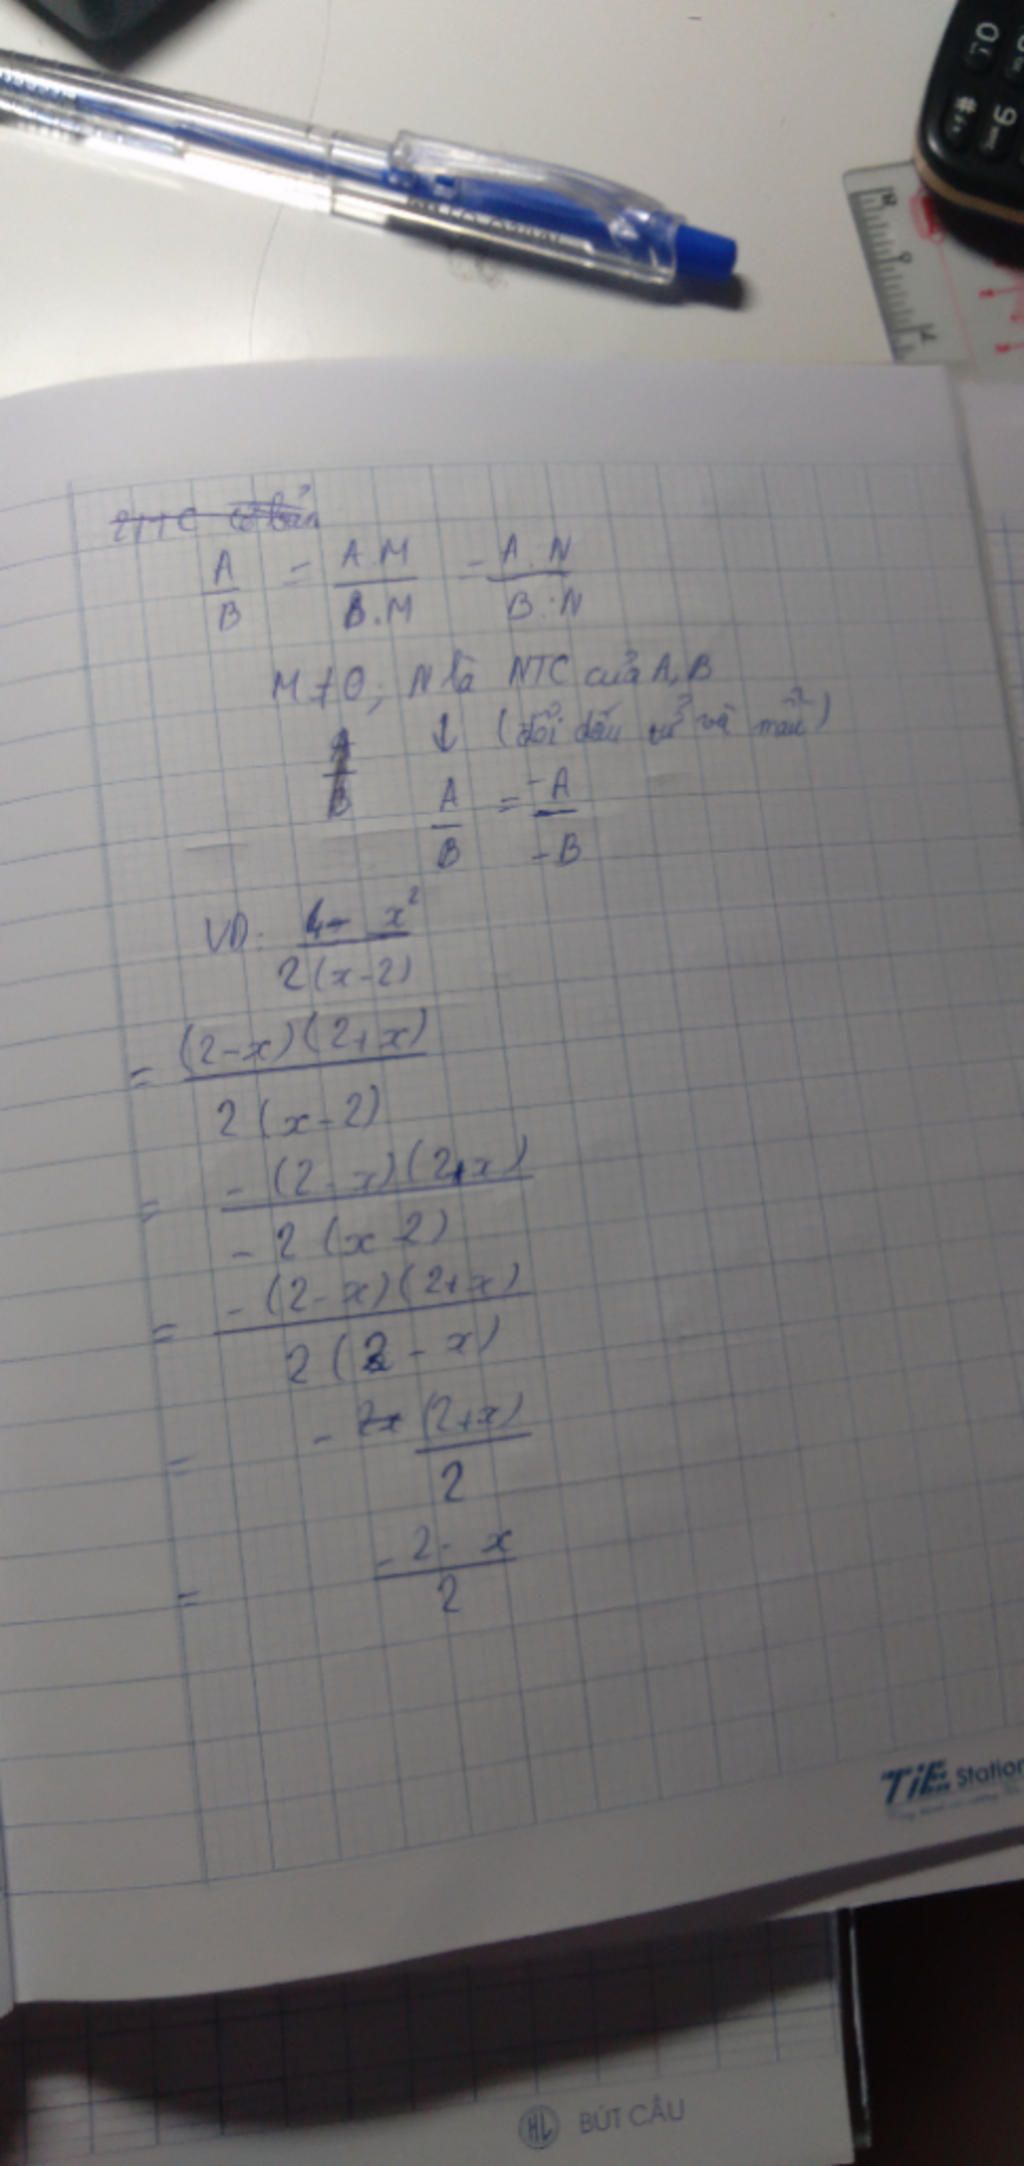 A/B = A.M/B.M = A:N/B:N
M ≠ 0; N là NTC của A, B
↓ (đổi dấu tử và mẫu)
A/B = -A/-B
VD: 4 - x²/2(x-2)
= (2-x)(2+x)/2(x-2)
= -(2-x)(2+x)/-2(x-2)
= -(2-x)(2+x)/2(2-x)
= -(2+x)/2
= -2-x/2
TiE Station
HL BÚT CÂU